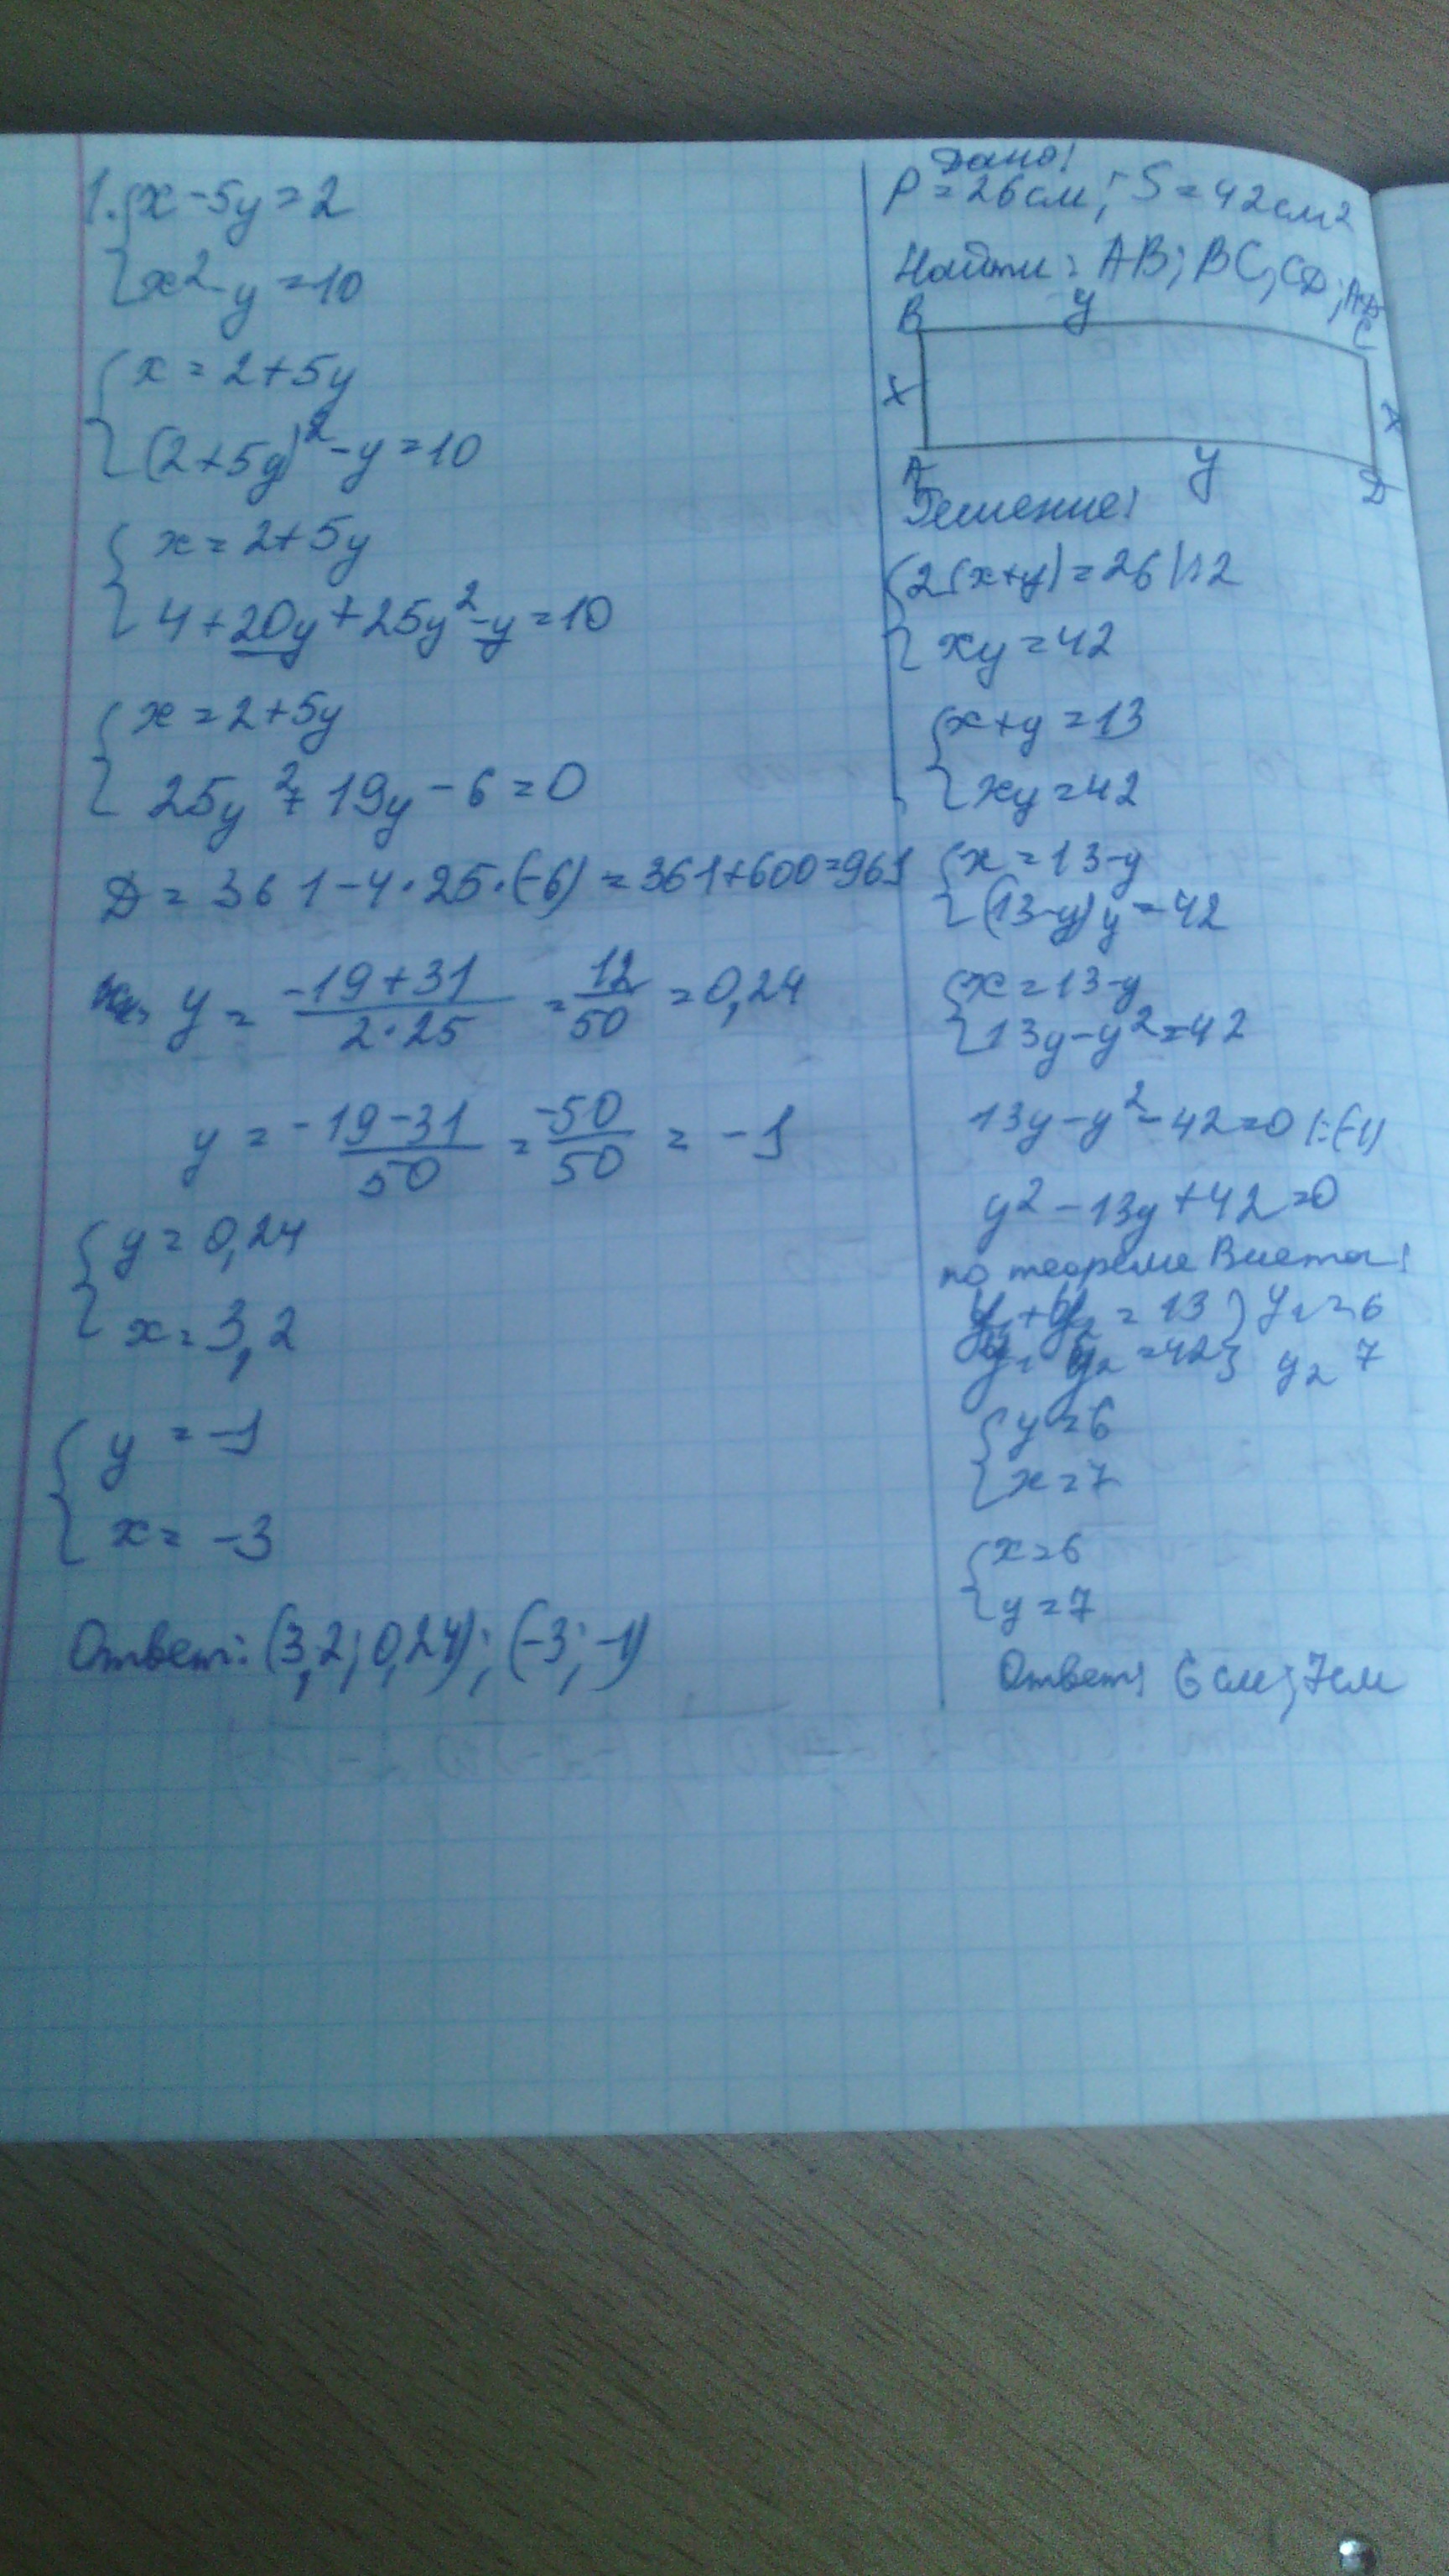 1. { x - 5y = 2
{ x² - y = 10
{ x = 2 + 5y
{ (2+5y)² - y = 10
{ x = 2 + 5y
{ 4 + 20y + 25y² - y = 10
{ x = 2 + 5y
{ 25y² + 19y - 6 = 0
D = 361 - 4·25·(-6) = 361 + 600 = 961
y = (-19+31)/(2·25) = 12/50 = 0,24
y = (-19-31)/50 = -50/50 = -1
{ y = 0,24
{ x = 3,2
{ y = -1
{ x = -3
Ответ: (3,2; 0,24); (-3; -1)
Дано:
P = 26 см; S = 42 см²
Найти: AB; BC; CD; AD
B y C
x x
A y D
Решение:
{ 2(x+y) = 26 |:2
{ xy = 42
{ x + y = 13
{ xy = 42
{ x = 13 - y
{ (13-y)y = 42
{ x = 13 - y
{ 13y - y² = 42
13y - y² - 42 = 0 |:(-1)
y² - 13y + 42 = 0
по теореме Виета:
y₁ + y₂ = 13 } y₁ = 6
y₁ y₂ = 42 } y₂ 7
{ y = 6
{ x = 7
{ x = 6
{ y = 7
Ответ: 6 см; 7 см